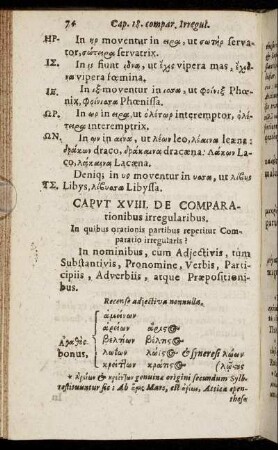 74 Cap. 18. compar. Irregul.
ΗΡ- In ηρ moventur in ειρα, ut σωτὴρ serva-
tor, σώτειρα servatrix.
ΙΣ. In ις fiunt ιδνα, ut ἔχις vipera mas, ἔχιδ-
να vipera fœmina,
ΙΞ. In ιξ moventur in ισσα, ut φοίνιξ Phœ-
nix, φοίνισσα Phœnissa.
ΩΡ. In ωρ in ειρα, ut ὀλέτωρ interemptor, ὀλέτ-
ειρα interemptrix.
ΩΝ. In ων in αινα, ut λέων leo, λέαινα leæna:
δράκων draco, δράκαινα dracæna: Λάκων La-
co, Λάκαινα Lacæna.
Deniq; in υς moventur in υσσα, ut λίβυς
ΥΣ. Libys, λίβυσσα Libyssa.
CAPVT XVIII. DE COMPARA-
rationibus irregularibus.
In quibus orationis partibus reperitur Com-
paratio irregularis?
In nominibus, cum Adjectivis, tùm
Substantivis, Pronomine, Verbis, Parti-
cipiis, Adverbiis, atque Præpositioni-
bus.
Recense adjectiva nonnulla.
ἀμείνων
ἀρείων ἄριστος
Ἀγαθὸς βελτίων βέλτιστος
bonus, λωΐων λώϊστος & syneresi λώων
κρείττων κράτιστος (λῷστος
* ἀρείων & κρείττων genuina origini secundum Sylb.
restituuntur sic: Ab ἄρης Mars, est ἀρίων, Attica epen-
thesi